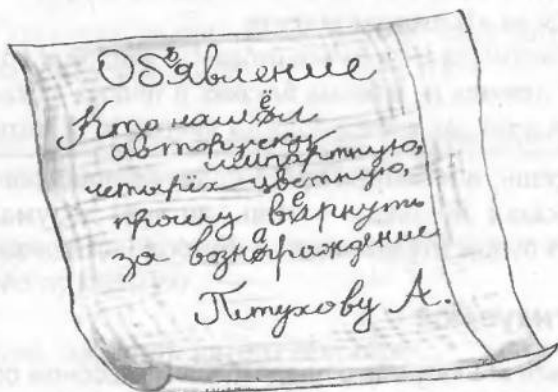 Объявление
Кто нашел
авторучку
импартную,
четырёх цветную,
прошу вернуть
за вознаграждение
Петухову А.